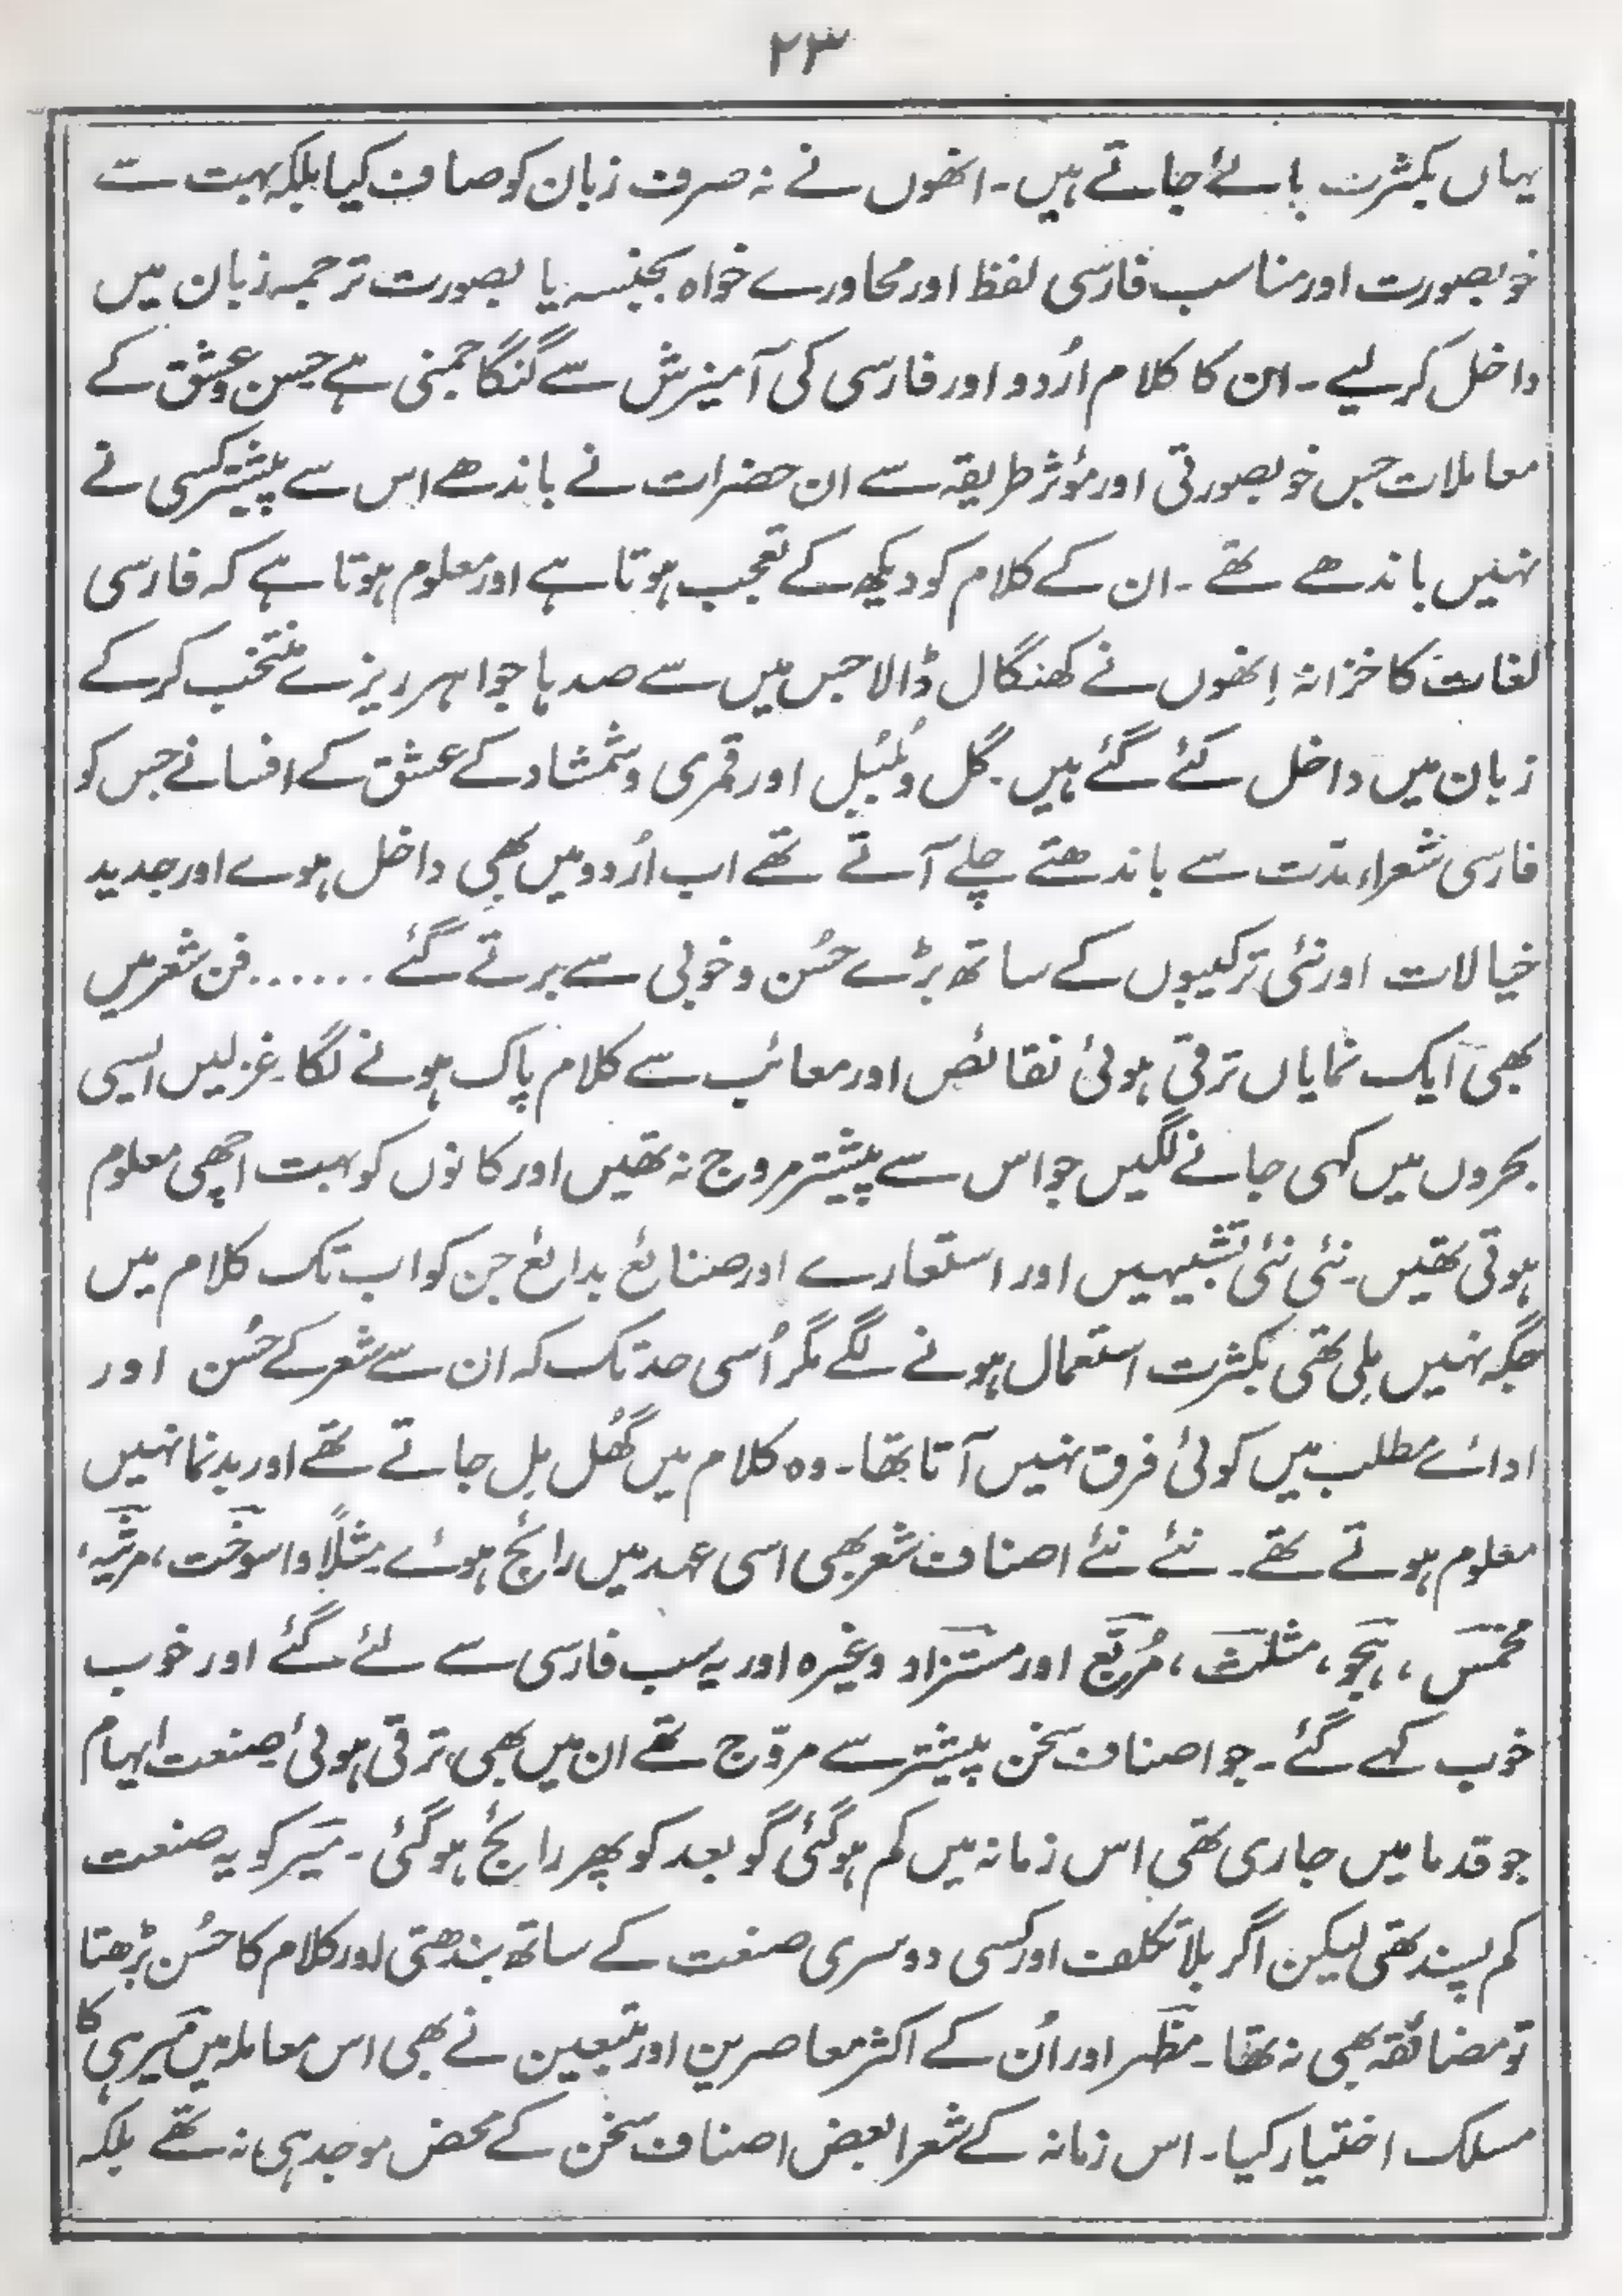 ۲۳
یہاں بکثرت پائے جاتے ہیں۔ انھوں نے نہ صرف زبان کو صاف کیا بلکہ بہت سے
خوبصورت اور مناسب فارسی لفظ اور محاورے خواہ بجنسہ یا بصورت ترجمہ زبان میں
داخل کر لیے۔ ان کا کلام اُردو اور فارسی کی آمیزش سے گنگا جمنی ہے حسن و عشق کے
معاملات جس خوبصورتی اور مؤثر طریقہ سے ان حضرات نے باندھے اس سے پیشتر کسی نے
نہیں باندھے تھے۔ ان کے کلام کو دیکھ کے تعجب ہوتا ہے اور معلوم ہوتا ہے کہ فارسی
لغات کا خزانہ اِنھوں نے کھنگال ڈالا جس میں سے صدہا جواہر ریزے منتخب کر کے
زبان میں داخل کئے گئے ہیں۔ گل و بُلبُل اور قمری و شمشاد کے عشق کے افسانے جس کو
فارسی شعراء مدّت سے باندھتے چلے آتے تھے اب اُردو میں بھی داخل ہوے اور جدید
خیالات اور نئی ترکیبوں کے ساتھ بڑے حُسن و خوبی سے برتے گئے ...... فن شعر میں
بھی ایک نمایاں ترقی ہوئی نقائص اور معائب سے کلام پاک ہونے لگا۔ غزلیں ایسی
بحروں میں کہی جانے لگیں جو اس سے پیشتر مروج نہ تھیں اور کانوں کو بہت اچھی معلوم
ہوتی تھیں۔ نئی نئی تشبیہیں اور استعارے اور صنائع بدائع جن کو اب تک کلام میں
جگہ نہیں مِلی تھی بکثرت استعمال ہونے لگے مگر اُسی حد تک کہ ان سے شعر کے حُسن اور
ادائے مطلب میں کوئی فرق نہیں آتا تھا۔ وہ کلام میں گھُل مِل جاتے تھے اور بدنما نہیں
معلوم ہوتے تھے۔ نئے نئے اصناف شعر بھی اسی عہد میں رائج ہوئے۔ مثلًا واسوخت، مرثیہ،
مخمس، ہجو، مثلث، مُربّع اور مستزاد وغیرہ اور یہ سب فارسی سے لئے گئے اور خوب
خوب کہے گئے۔ جو اصناف سخن پیشتر سے مروّج تھے ان میں بھی ترقی ہوئی۔ صنعت ایہام
جو قدما میں جاری تھی اس زمانہ میں کم ہو گئی گو بعد کو پھر رائج ہو گئی۔ میر کو یہ صنعت
کم پسند تھی لیکن اگر بلا تکلف اور کسی دوسری صنعت کے ساتھ بندھتی اور کلام کا حُسن بڑھتا
تو مضائقہ بھی نہ تھا۔ مظہر اور اُن کے اکثر معاصرین اور متبعین نے بھی اس معاملہ میں میر ہی کا
مسلک اختیار کیا۔ اس زمانہ کے شعرا بعض اصناف سخن کے محض موجد ہی نہ تھے بلکہ